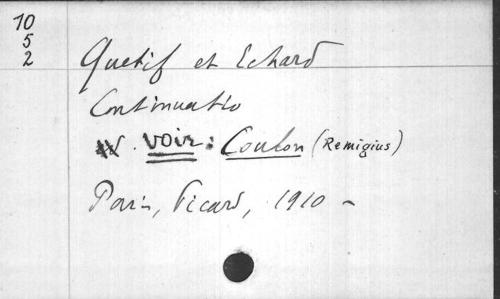 10
5
2
Quetif et Echard
Continuatio
voir : Coulon (Remigius)
Paris, Picard, 1910 -